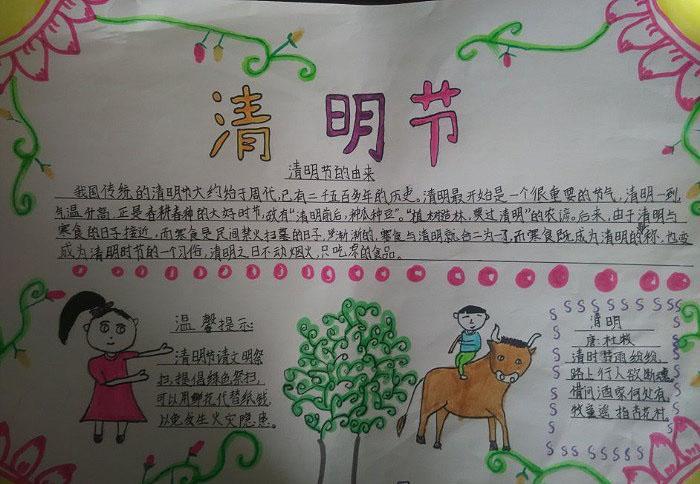 清明节
清明节的由来
我国传统的清明节大约始于周代,已有二千五百多年的历史。清明最开始是一个很重要的节气,清明一到
气温升高,正是春耕春种的大好时节,故有"清明前后,种瓜种豆"。"植树造林,莫过清明"的农谚。后来,由于清明与
寒食的日子接近,而寒食是民间禁火扫墓的日子,渐渐的,寒食与清明就合二为一了,而寒食既成为清明的别称,也变
成为清明时节的一个习俗,清明之日不动烟火,只吃凉的食品。
温馨提示
清明节请文明祭
扫,提倡绿色祭扫,
可以用鲜花代替纸钱
以免发生火灾隐患。
清明
唐:杜牧
清时节雨纷纷,
路上行人欲断魂
借问酒家何处有,
牧童遥指杏花村